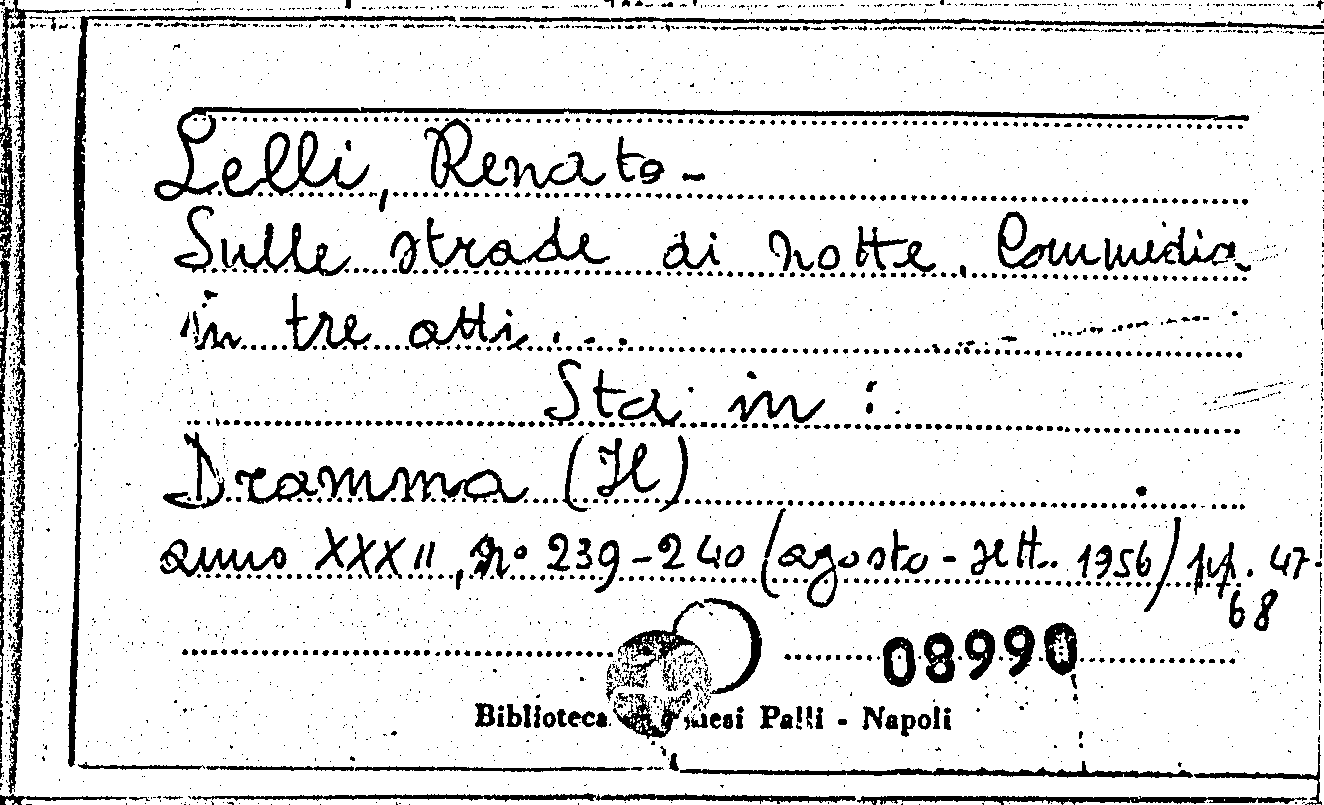 Lelli, Renato -
Sulle strade di notte. Commedia
in tre atti...
Sta in :
Dramma (Il)
anno XXXII, n° 239-240 (agosto - sett. 1956) pp. 47-
68
08990
Biblioteca Palli - Napoli